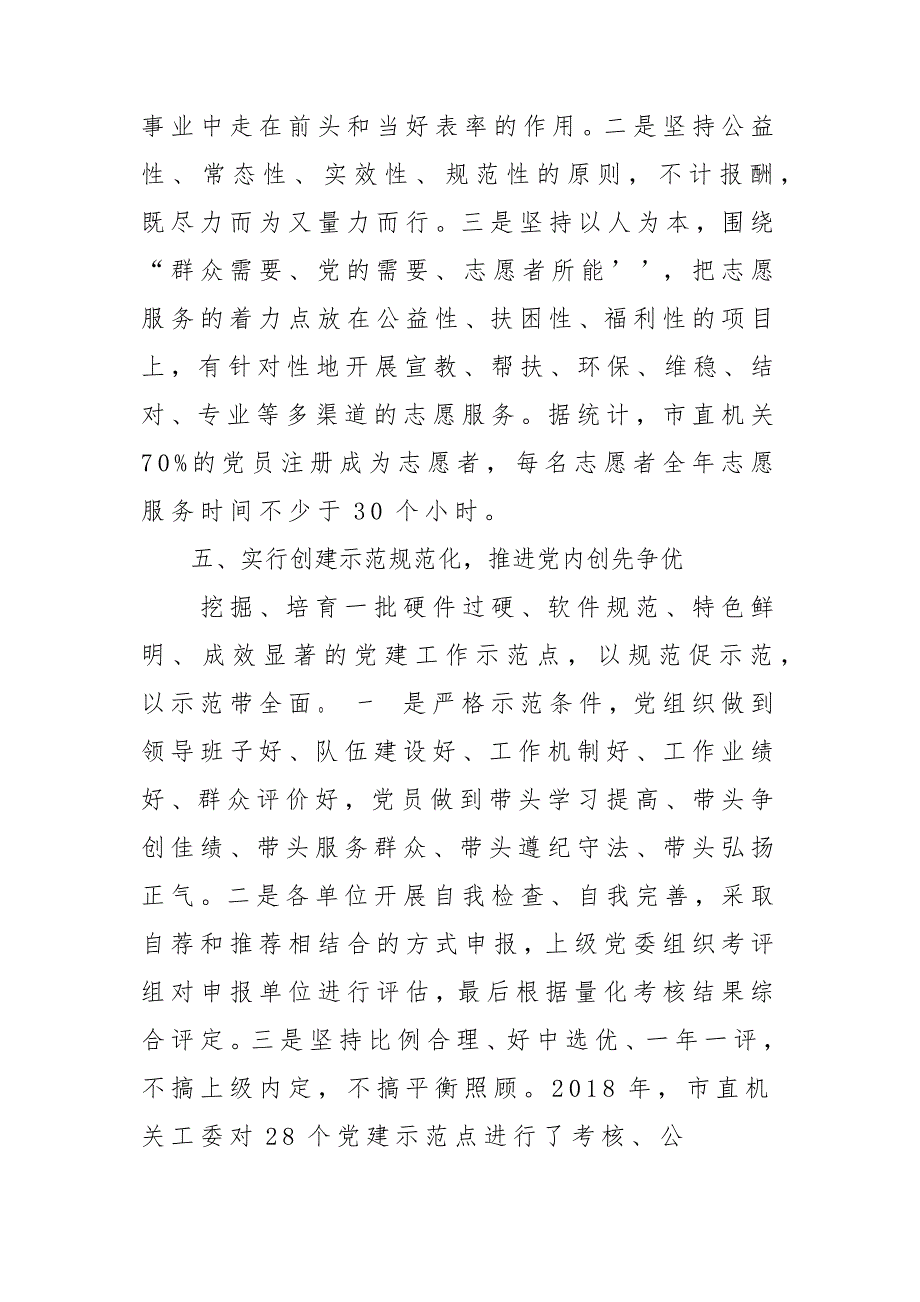 事业中走在前头和当好表率的作用。二是坚持公益
性、常态性、实效性、规范性的原则，不计报酬，
既尽力而为又量力而行。三是坚持以人为本，围绕
“群众需要、党的需要、志愿者所能’’，把志愿
服务的着力点放在公益性、扶困性、福利性的项目
上，有针对性地开展宣教、帮扶、环保、维稳、结
对、专业等多渠道的志愿服务。据统计，市直机关
70%的党员注册成为志愿者，每名志愿者全年志愿
服务时间不少于 30 个小时。
五、实行创建示范规范化，推进党内创先争优
挖掘、培育一批硬件过硬、软件规范、特色鲜
明、成效显著的党建工作示范点，以规范促示范，
以示范带全面。一 是严格示范条件，党组织做到
领导班子好、队伍建设好、工作机制好、工作业绩
好、群众评价好，党员做到带头学习提高、带头争
创佳绩、带头服务群众、带头遵纪守法、带头弘扬
正气。二是各单位开展自我检查、自我完善，采取
自荐和推荐相结合的方式申报，上级党委组织考评
组对申报单位进行评估，最后根据量化考核结果综
合评定。三是坚持比例合理、好中选优、一年一评，
不搞上级内定，不搞平衡照顾。2018 年，市直机
关工委对 28 个党建示范点进行了考核、公